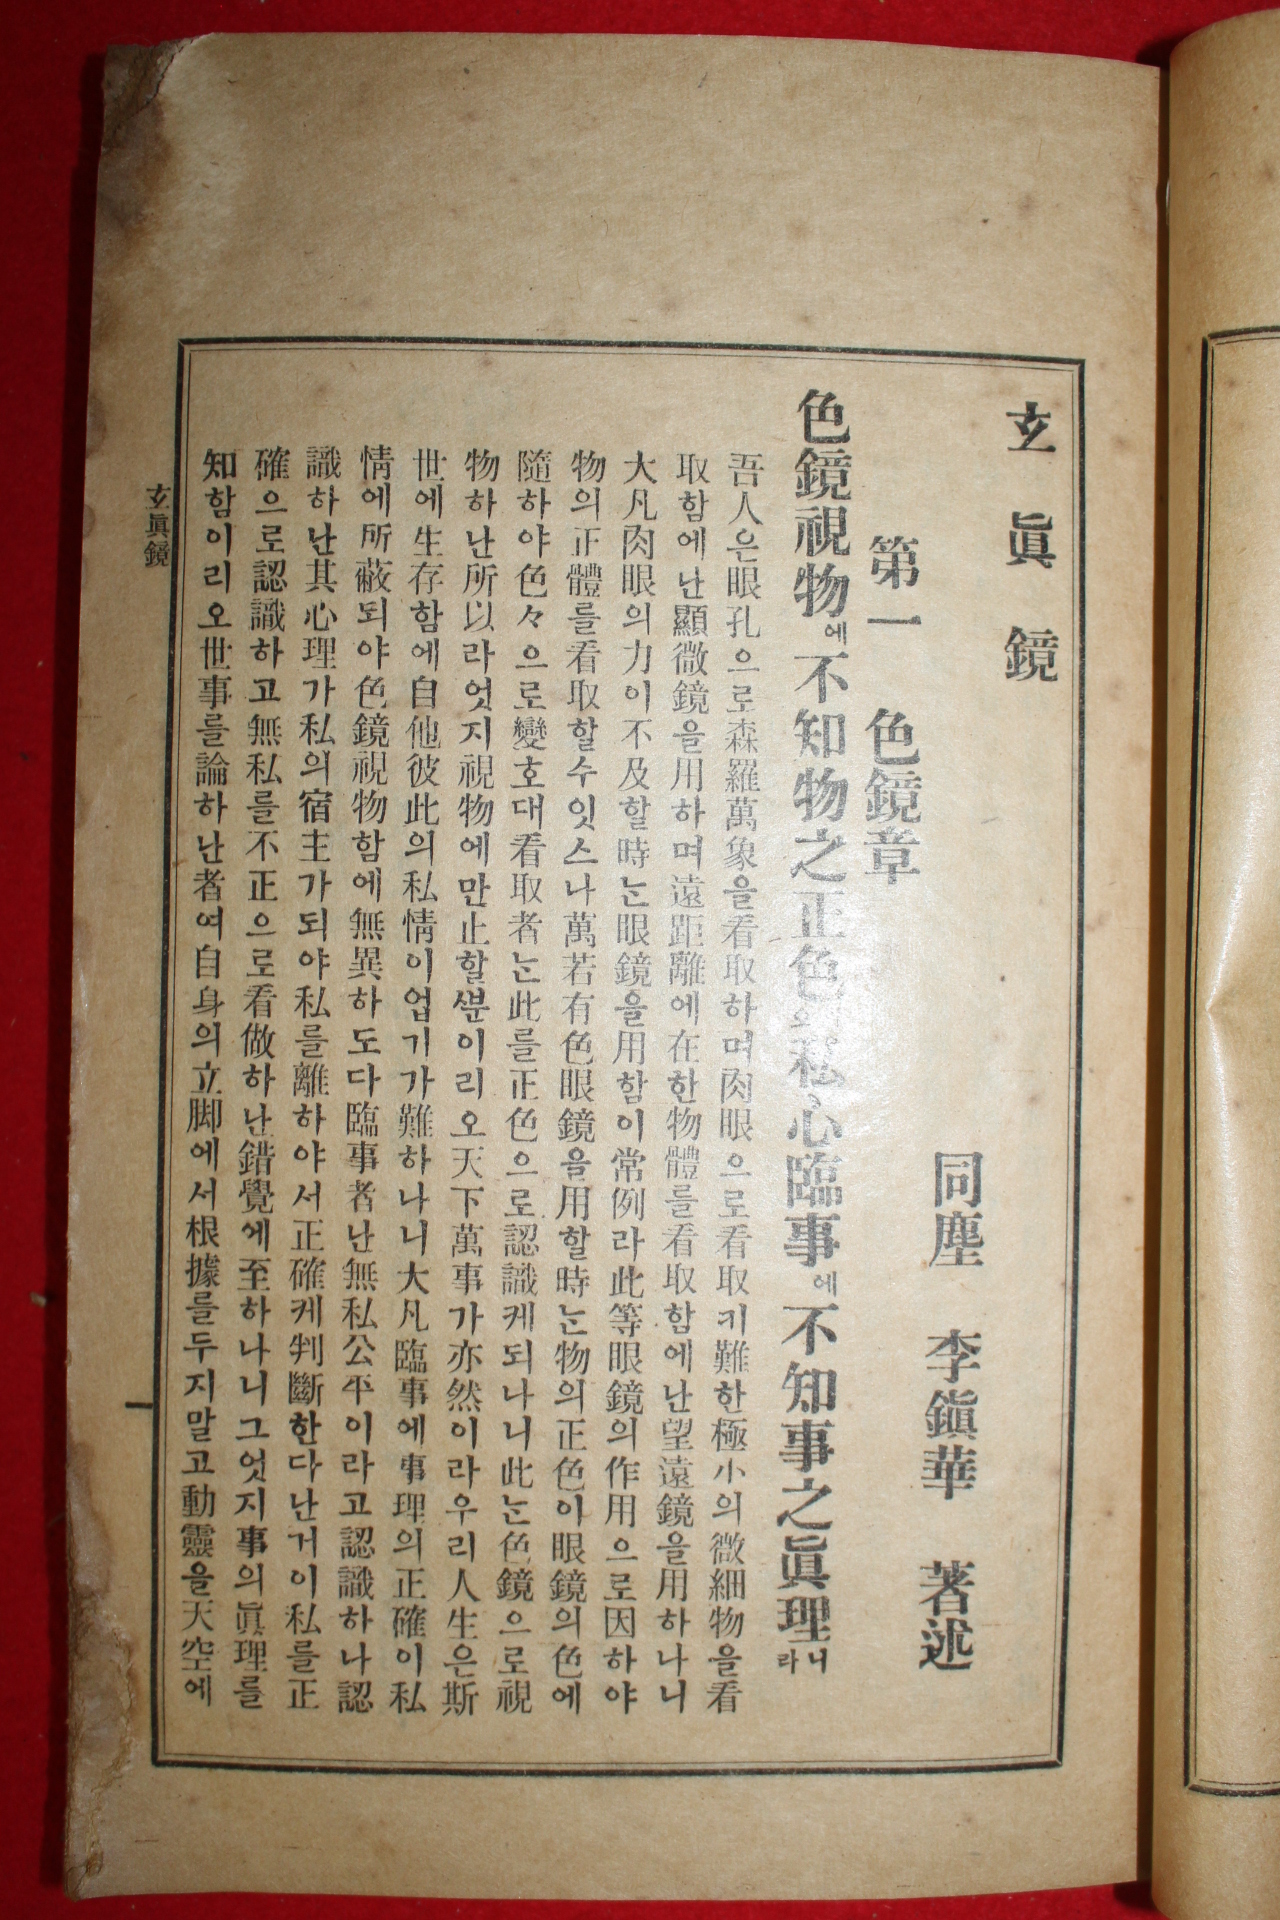 玄眞鏡
同塵 李鎭華 著述
第一 色鏡章
色鏡視物에不知物之正色으私心臨事에不知事之眞理니라
吾人은眼孔으로森羅萬象을看取하며肉眼으로看取키難한極小의微細物을看
取함에난顯微鏡을用하며遠距離에在한物體를看取함에난望遠鏡을用하나니
大凡肉眼의力이不及할時는眼鏡을用함이常例라此等眼鏡의作用으로因하야
物의正體를看取할수잇스나萬若有色眼鏡을用할時는物의正色이眼鏡의色에
隨하야色々으로變호대看取者는此를正色으로認識케되나니此는色鏡으로視
物하난所以라엇지視物에만止할ᄲᅮᆫ이리오天下萬事가亦然이라우리人生은斯
世에生存함에自他彼此의私情이업기가難하나니大凡臨事에事理의正確이私
情에所蔽되야色鏡視物함에無異하도다臨事者난無私公平이라고認識하나認
識하난其心理가私의宿主가되야私를離하야서正確케判斷한다난거이私를正
確으로認識하고無私를不正으로看做하난錯覺에至하나니그엇지事의眞理를
知함이리오世事를論하난者여自身의立脚에서根據를두지말고動靈을天空에
玄眞鏡